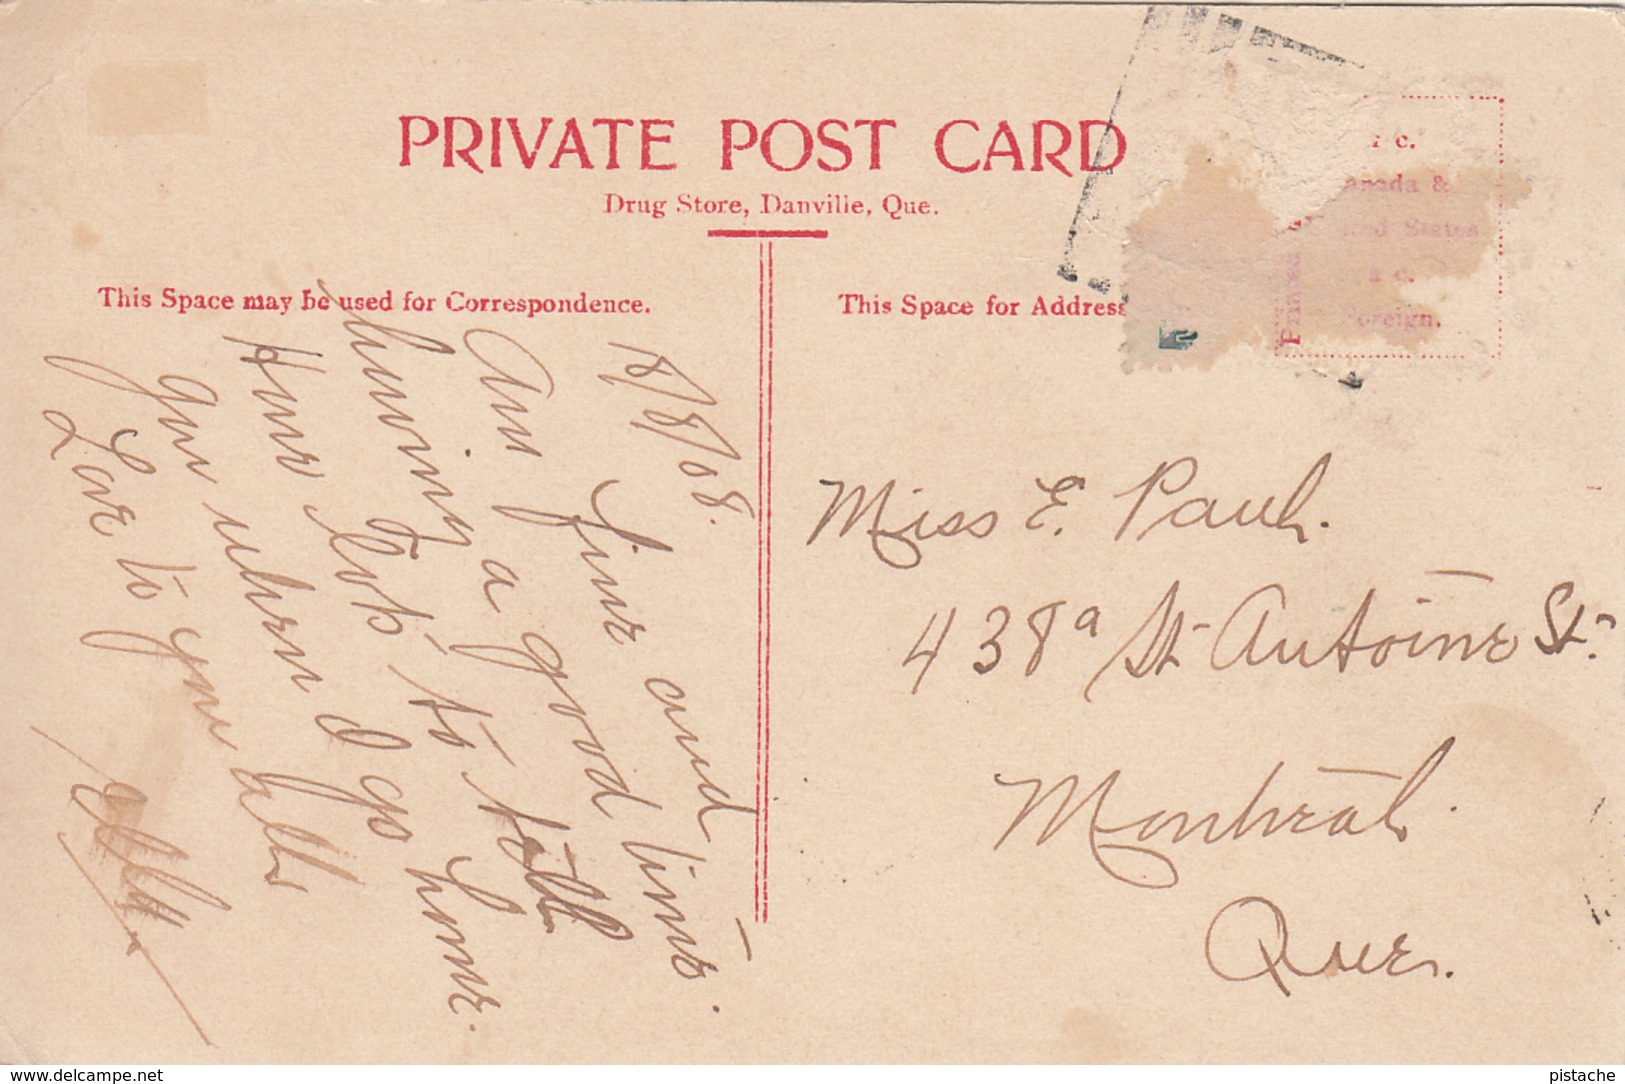 PRIVATE POST CARD
Drug Store, Danville, Que.
This Space may be used for Correspondence.
This Space for Address
1 c.
anada &
States
2 c.
Foreign.
18/8/08.
Am fine and
having a good time.
Have lots to tell
you when I go home.
Love to you all
Miss E. Paul.
438a St Antoine St.
Montreal.
Que.
www.delcampe.net
pistache